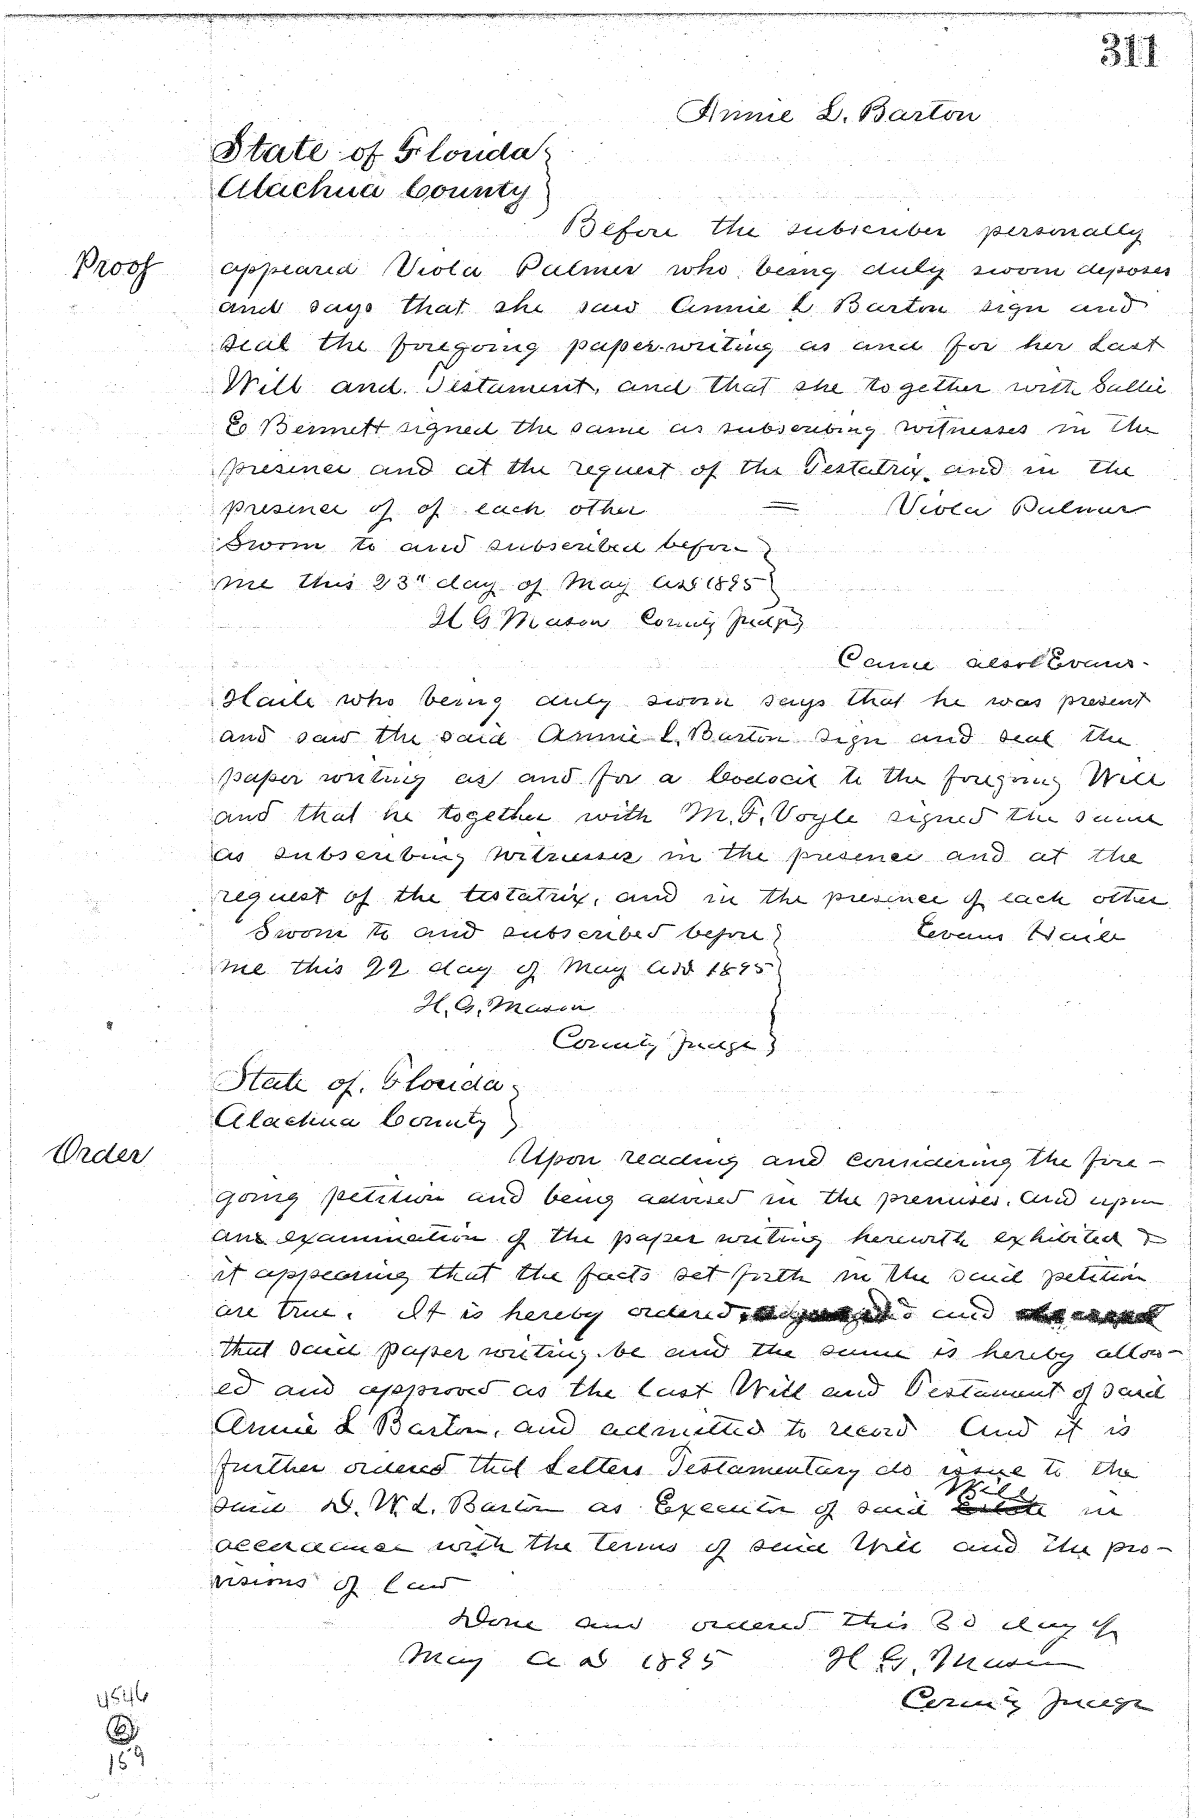 311
Annie L. Barton
State of Florida
Alachua County
Before the subscriber personally
Proof
appeared Viola Palmer who being duly sworn deposes
and says that she saw Annie L Barton sign and
seal the foregoing paper-writing as and for her Last
Will and Testament, and that she together with Sallie
E Bennett signed the same as subscribing witnesses in the
presence and at the request of the Testatrix and in the
presence of of each other = Viola Palmer
Sworn to and subscribed before
me this 23" day of May AD 1895
H G Mason County Judge
Came also Evans
Haile who being duly sworn says that he was present
and saw the said Annie L. Barton sign and seal the
paper writing as and for a Codocil to the foregoing Will
and that he together with M. F. Voyle signed the same
as subscribing witnesses in the presence and at the
request of the testatrix, and in the presence of each other
Sworn to and subscribed before Evans Haile
me this 22 day of May AD 1895
H. G. Mason
County Judge
State of Florida
Alachua County
Order
Upon reading and considering the fore-
going petition and being advised in the premises. and upon
an examination of the paper writing herewith exhibited &
it appearing that the facts set forth in the said petition
are true. It is hereby ordered, and
that said paper writing be and the same is hereby allow-
ed and approved as the Last Will and Testament of said
Annie L Barton, and admitted to record And it is
further ordered that Letters Testamentary do issue to the
said D. W. L. Barton as Executor of said Will in
accordance with the terms of said Will and the pro-
visions of law
Done and ordered this 30 day of
May A D 1895 H. G. Mason
County Judge
4546
6
159